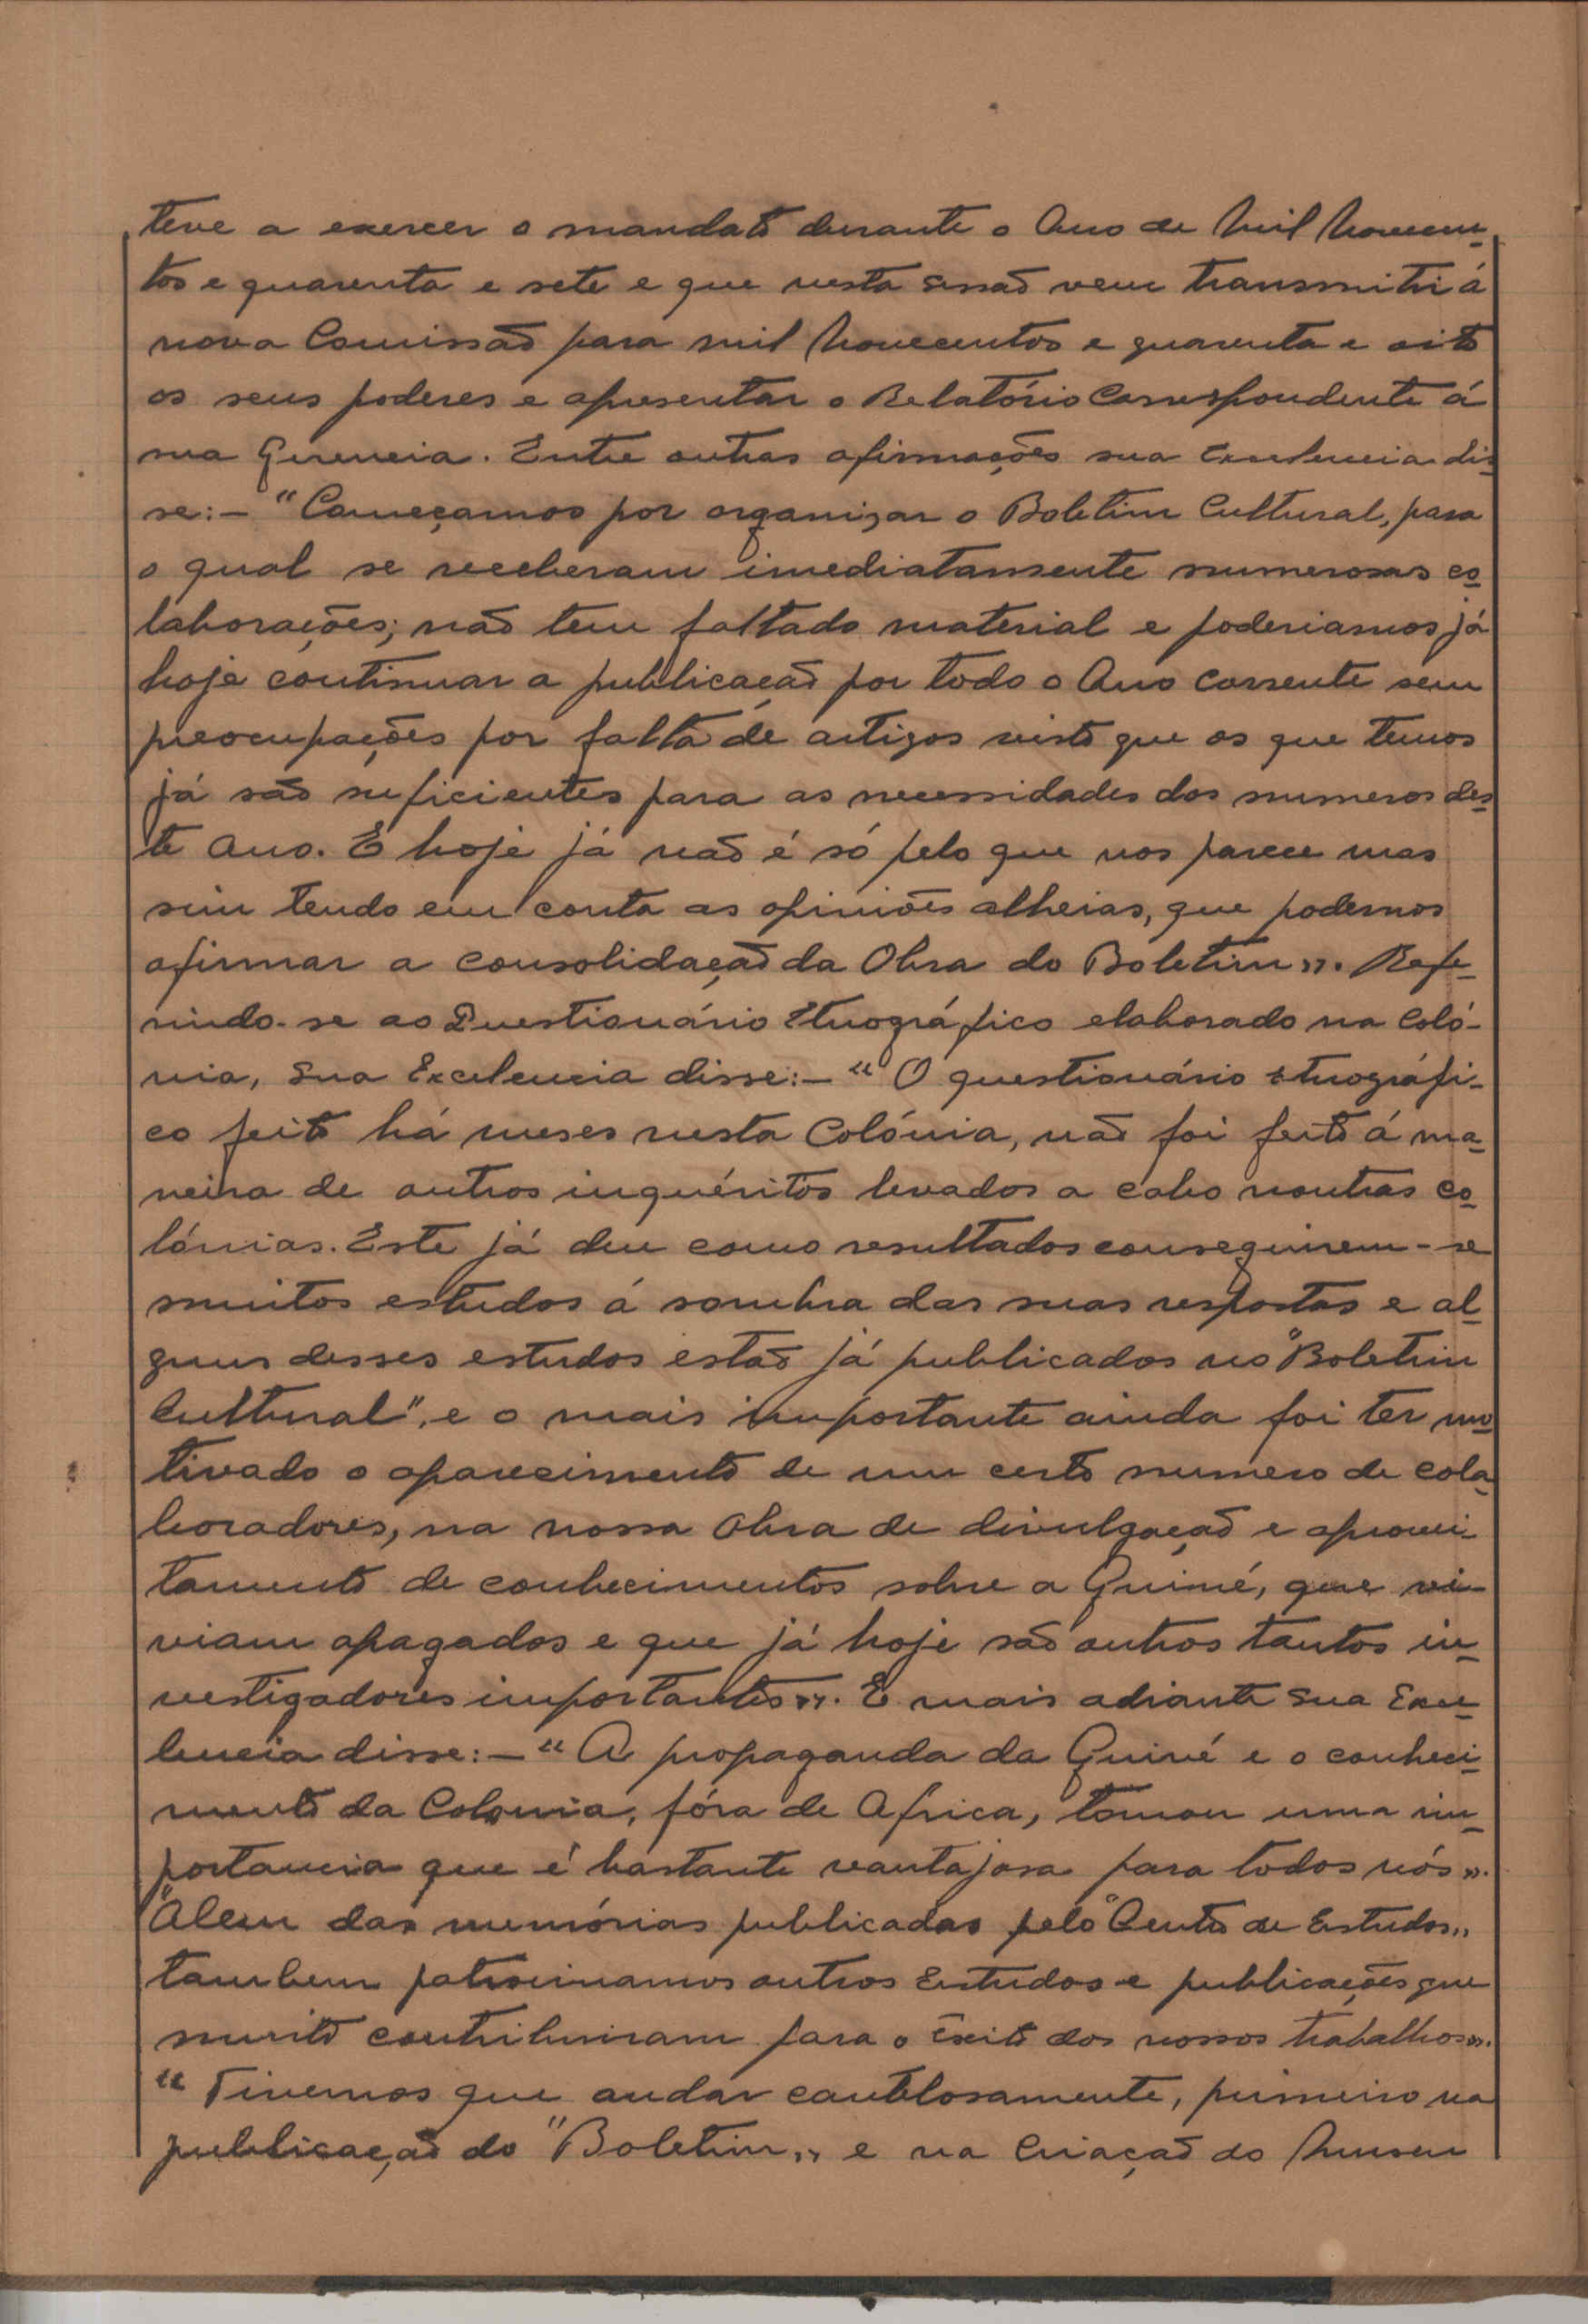 teve a exercer o mandato durante o Ano de Mil Novecen-
tos e quarenta e sete e que nesta sessão vem transmitir á
nova Comissão para mil Novecentos e quarenta e oito
os seus poderes e apresentar o Relatório Correspondente á
sua Gerencia. Entre outras afirmações sua Excelencia dis-
se:- "Começamos por organizar o Boletim Cultural, para
o qual se receberam imediatamente numerosas co-
laborações; não tem faltado material e poderiamos já
hoje continuar a publicação por todo o Ano corrente sem
preocupações por falta de artigos visto que os que temos
já são suficientes para as necessidades dos numeros des-
te Ano. E hoje já não é só pelo que nos parece mas
sim tendo em conta as opiniões alheias, que podemos
afirmar a consolidação da Obra do Boletim". Refe-
rindo-se ao Questionário Etnográfico elaborado na Coló-
nia, Sua Excelencia disse:- "O questionário etnográfi-
co feito há meses nesta Colónia, não foi feito á ma-
neira de outros inquéritos levados a cabo noutras co-
lónias. Este já deu como resultados conseguirem-se
muitos estudos á sombra das suas respostas e al-
guns desses estudos estão já publicados no "Boletim
Cultural", e o mais importante ainda foi ter mo-
tivado o aparecimento de um certo numero de cola-
boradores, na nossa Obra de divulgação e aprovei-
tamento de conhecimentos sobre a Guiné, que vi-
viam apagados e que já hoje são outros tantos in-
vestigadores importantes". E mais adiante Sua Exce-
lencia disse:- "A propaganda da Guiné e o conheci-
mento da Colonia, fóra de Africa, tomou uma im-
portancia que é bastante vantajosa para todos nós".
"Alem das memórias publicadas pelo "Centro de Estudos"
tambem patrocinamos outros Estudos e publicações que
muito contribuiram para o êxito dos nossos trabalhos".
"Tivemos que andar cautelosamente, primeiro na
publicação do "Boletim" e na Criação do Museu